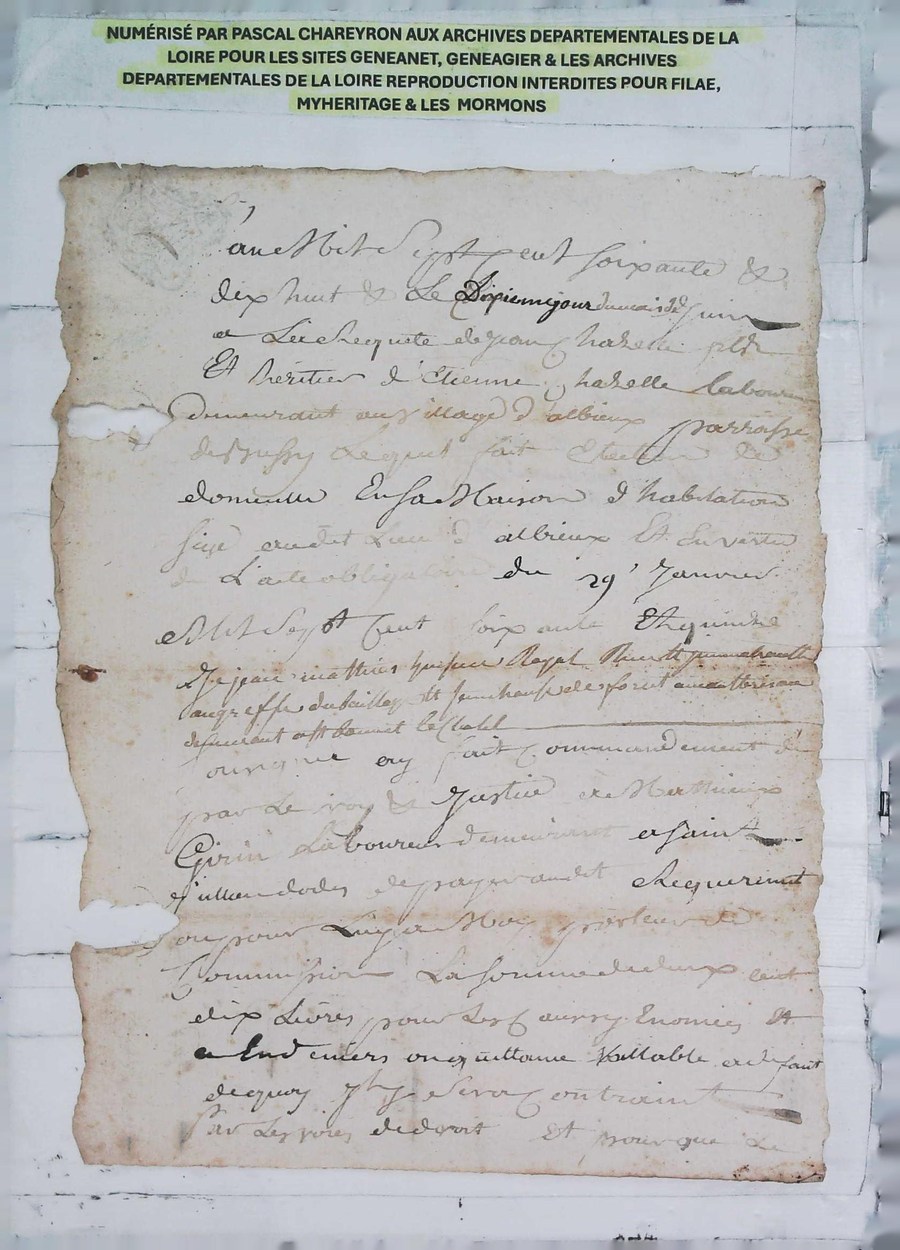 NUMÉRISÉ PAR PASCAL CHAREYRON AUX ARCHIVES DEPARTEMENTALES DE LA
LOIRE POUR LES SITES GENEANET, GENEAGIER & LES ARCHIVES
DEPARTEMENTALES DE LA LOIRE REPRODUCTION INTERDITES POUR FILAE,
MYHERITAGE & LES MORMONS
L'an Mil Sept Cent soixante &
dix huit & Le Dixieme jour du mois de Juin
a La Requete de Jean Chazelle
Et héritier d'Etienne Chazelle laboureur
demeurant au village d'albieux parroisse
de Bussy Lequel fait Election de
domicille En sa Maison d'habitation
size audit Lieu d'albieux Et En vertu
de L'acte obligatoire du 29e Janvier
Mil Sept Cent soixante Et quinze
Je jean mathieu huissier Royal
au greffe du baillage Et senechaussée de forest a montbrison
demeurant a st bonnet le
ay fait Commandement de
par Le roy & Justice a Mathieux
Girin Laboureur demeurant a saint
Julien de payer audit Requerant
ou pour Luy a Moy porteur de
Commission La somme de deux cent
dix Livres pour Les Causes Enoncées Et
a deniers ou quittance Vallable a defaut
de quoy il y sera Contraint
Par Les voies de droit Et pour que Le